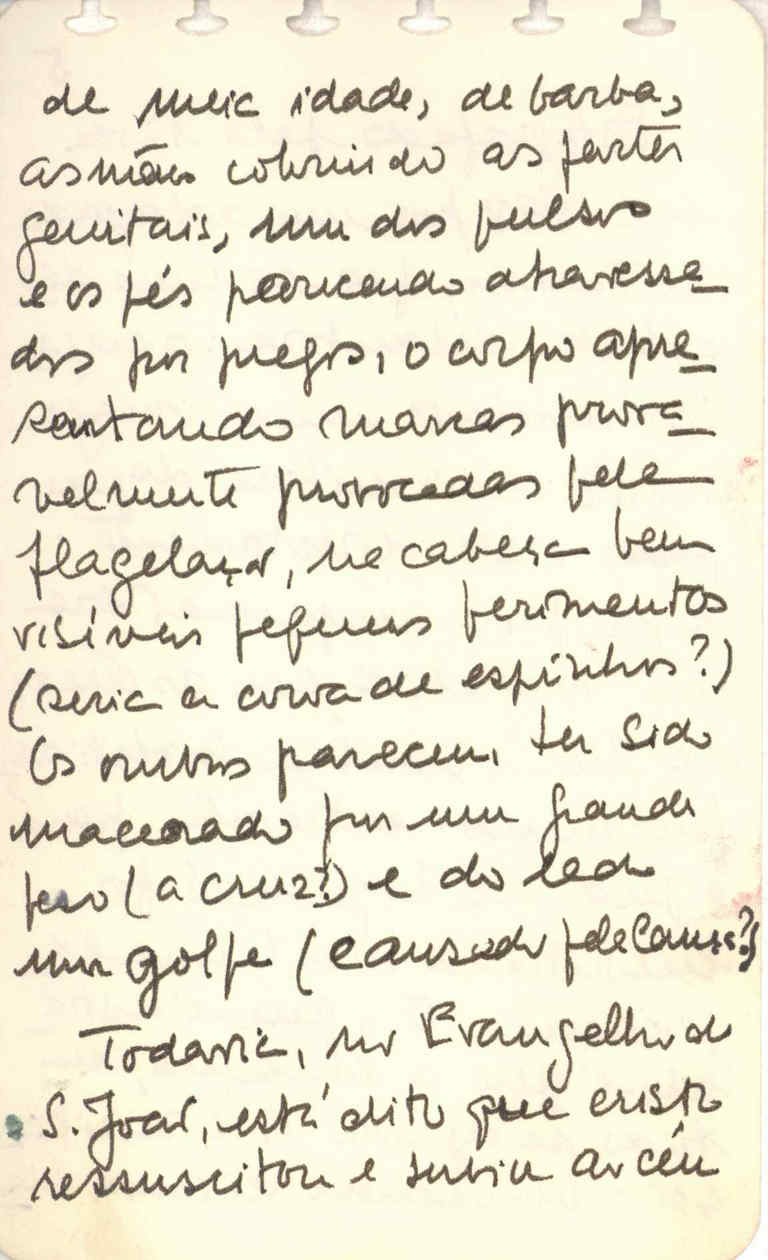 de meia idade, de barba,
as mãos cobrindo as partes
genitais, um dos pulsos
e os pés parecendo atravessa-
dos por pregos, o corpo apre-
sentando marcas prova-
velmente provocadas pela
flagelação, na cabeça bem
visíveis pequenos ferimentos
(seria a coroa de espinhos?)
Os ombros parecem ter sido
macerado por um grande
peso (a cruz?) e do lado
um golpe (causado pela lança?)
Todavia, no Evangelho de
S. João, está dito que cristo
ressuscitou e subiu ao céu